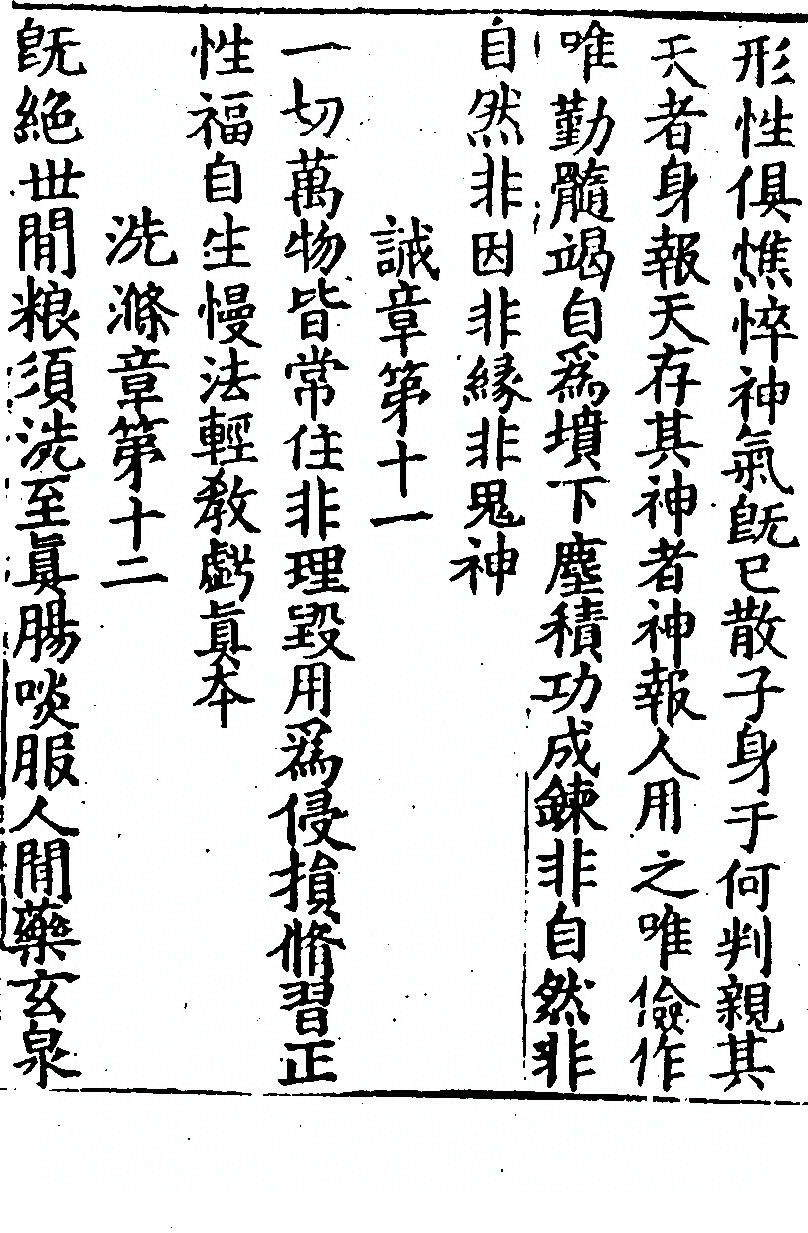 形性俱憔悴神氣旣已散子身于何判親其
天者身報天存其神者神報人用之唯儉作
唯勤髓竭自爲墳下塵積功成鍊非自然非
自然非因非緣非鬼神
誡章第十一
一切萬物皆常住非理毀用爲侵損脩習正
性福自生慢法輕教戲眞本
洗滌章第十二
旣絕世閒粮須洗至眞腸啖服人閒藥玄泉